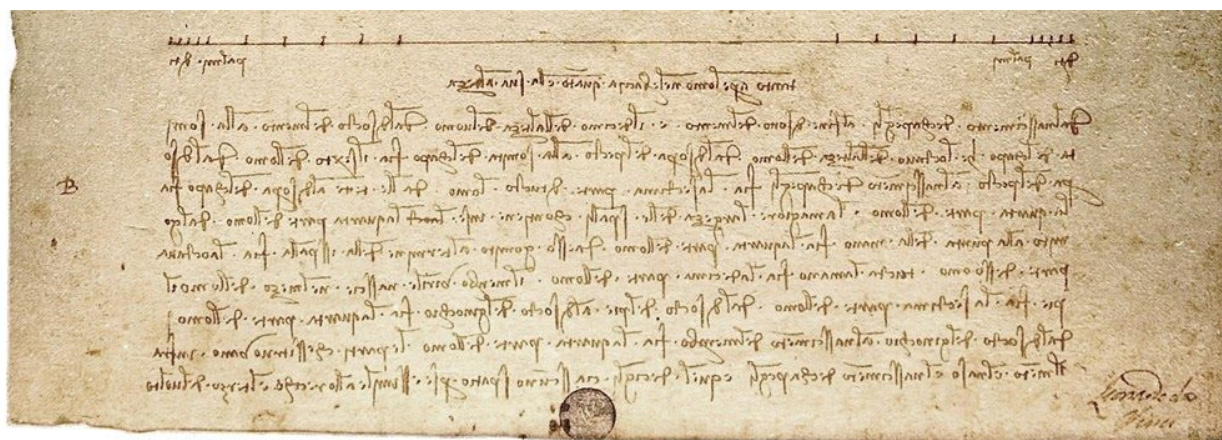 br palmi palmi br
tanto apre lomo nelle braccia quanto ella sua alteza
dal nascimento de capegli al fine di sotto del mento e il decimo dellalteza del uomo dal di sotto del mento alla somi
ta del capo he loctavo dellalteza dell omo dal di sopra del pecto alla somita del capo fia il sexto dell omo dal di so
pra del pecto al nasscimento de capegli fia la settima parte di tutto lomo dalle tette al di sopra del capo fia
la quarta parte dell omo la magiore largeza delle spalli contiene in se la quarta parte dell omo dal go
mito alla punta della mano fia la quarta parte dell omo da esso gomito al termine della isspalla fia la octava
parte desso omo tutta la mano fia la decima parte dell omo il membro virile nasscie nel mezo dell omo il
pie fia la septima parte dell omo dal di sotto del pie al di sotto del ginochio fia la quarta parte dell omo
dal di sotto del ginochio al nasscimento del membro fia la quarta parte dell omo le parti che ssi truovano infra
il mento el naso el nasscimento de capegli e quel de cigli ciasscuno spatio per se essimile allorechie el terzo del volto
Leonardo da
Vinci